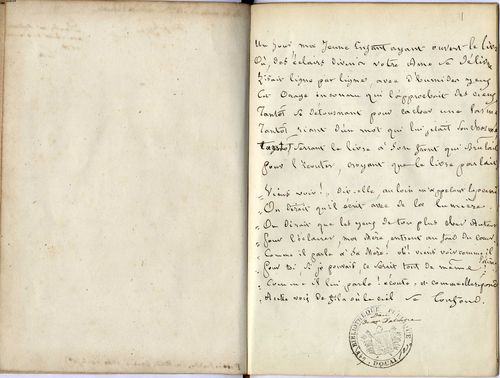 1
Un jour ma jeune Enfant ayant ouvert le livre
Où, des éclairs divins votre Ame se délivre
Lisait ligne par ligne avec d'humides yeux
Cet Orage inconnu qui l'approchait des cieux
Tantôt se détournant pour cacher une larme
Tantôt riant d'un mot qui lui jetait son
Tantôt serrant le livre à son front qui brûlait
Pour l'écouter, croyant que le livre parlait
" Viens voir! " dit-elle, au loin m'appelant
" On dirait qu'il écrit avec de la lumière.
" On dirait que les yeux de ton plus cher Auteur
" Pour l'éclairer, ma Mère, entrent au fond du cœur.
" Comme il parle à sa Mère! oh! viens voir comme il
" Pour toi si je pouvais, ce serait tout de même!
" Comme il lui parle! écoute, et comme elle répond
" A cette voix de fils où le ciel se confond.
BIBLIOTHEQUE
DOUAI